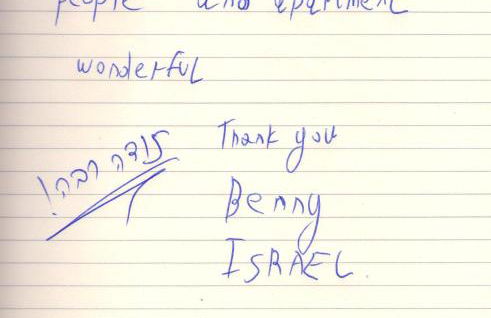 people and apartment
wonderful
Thank you
תודה רבה!
Benny
ISRAEL.